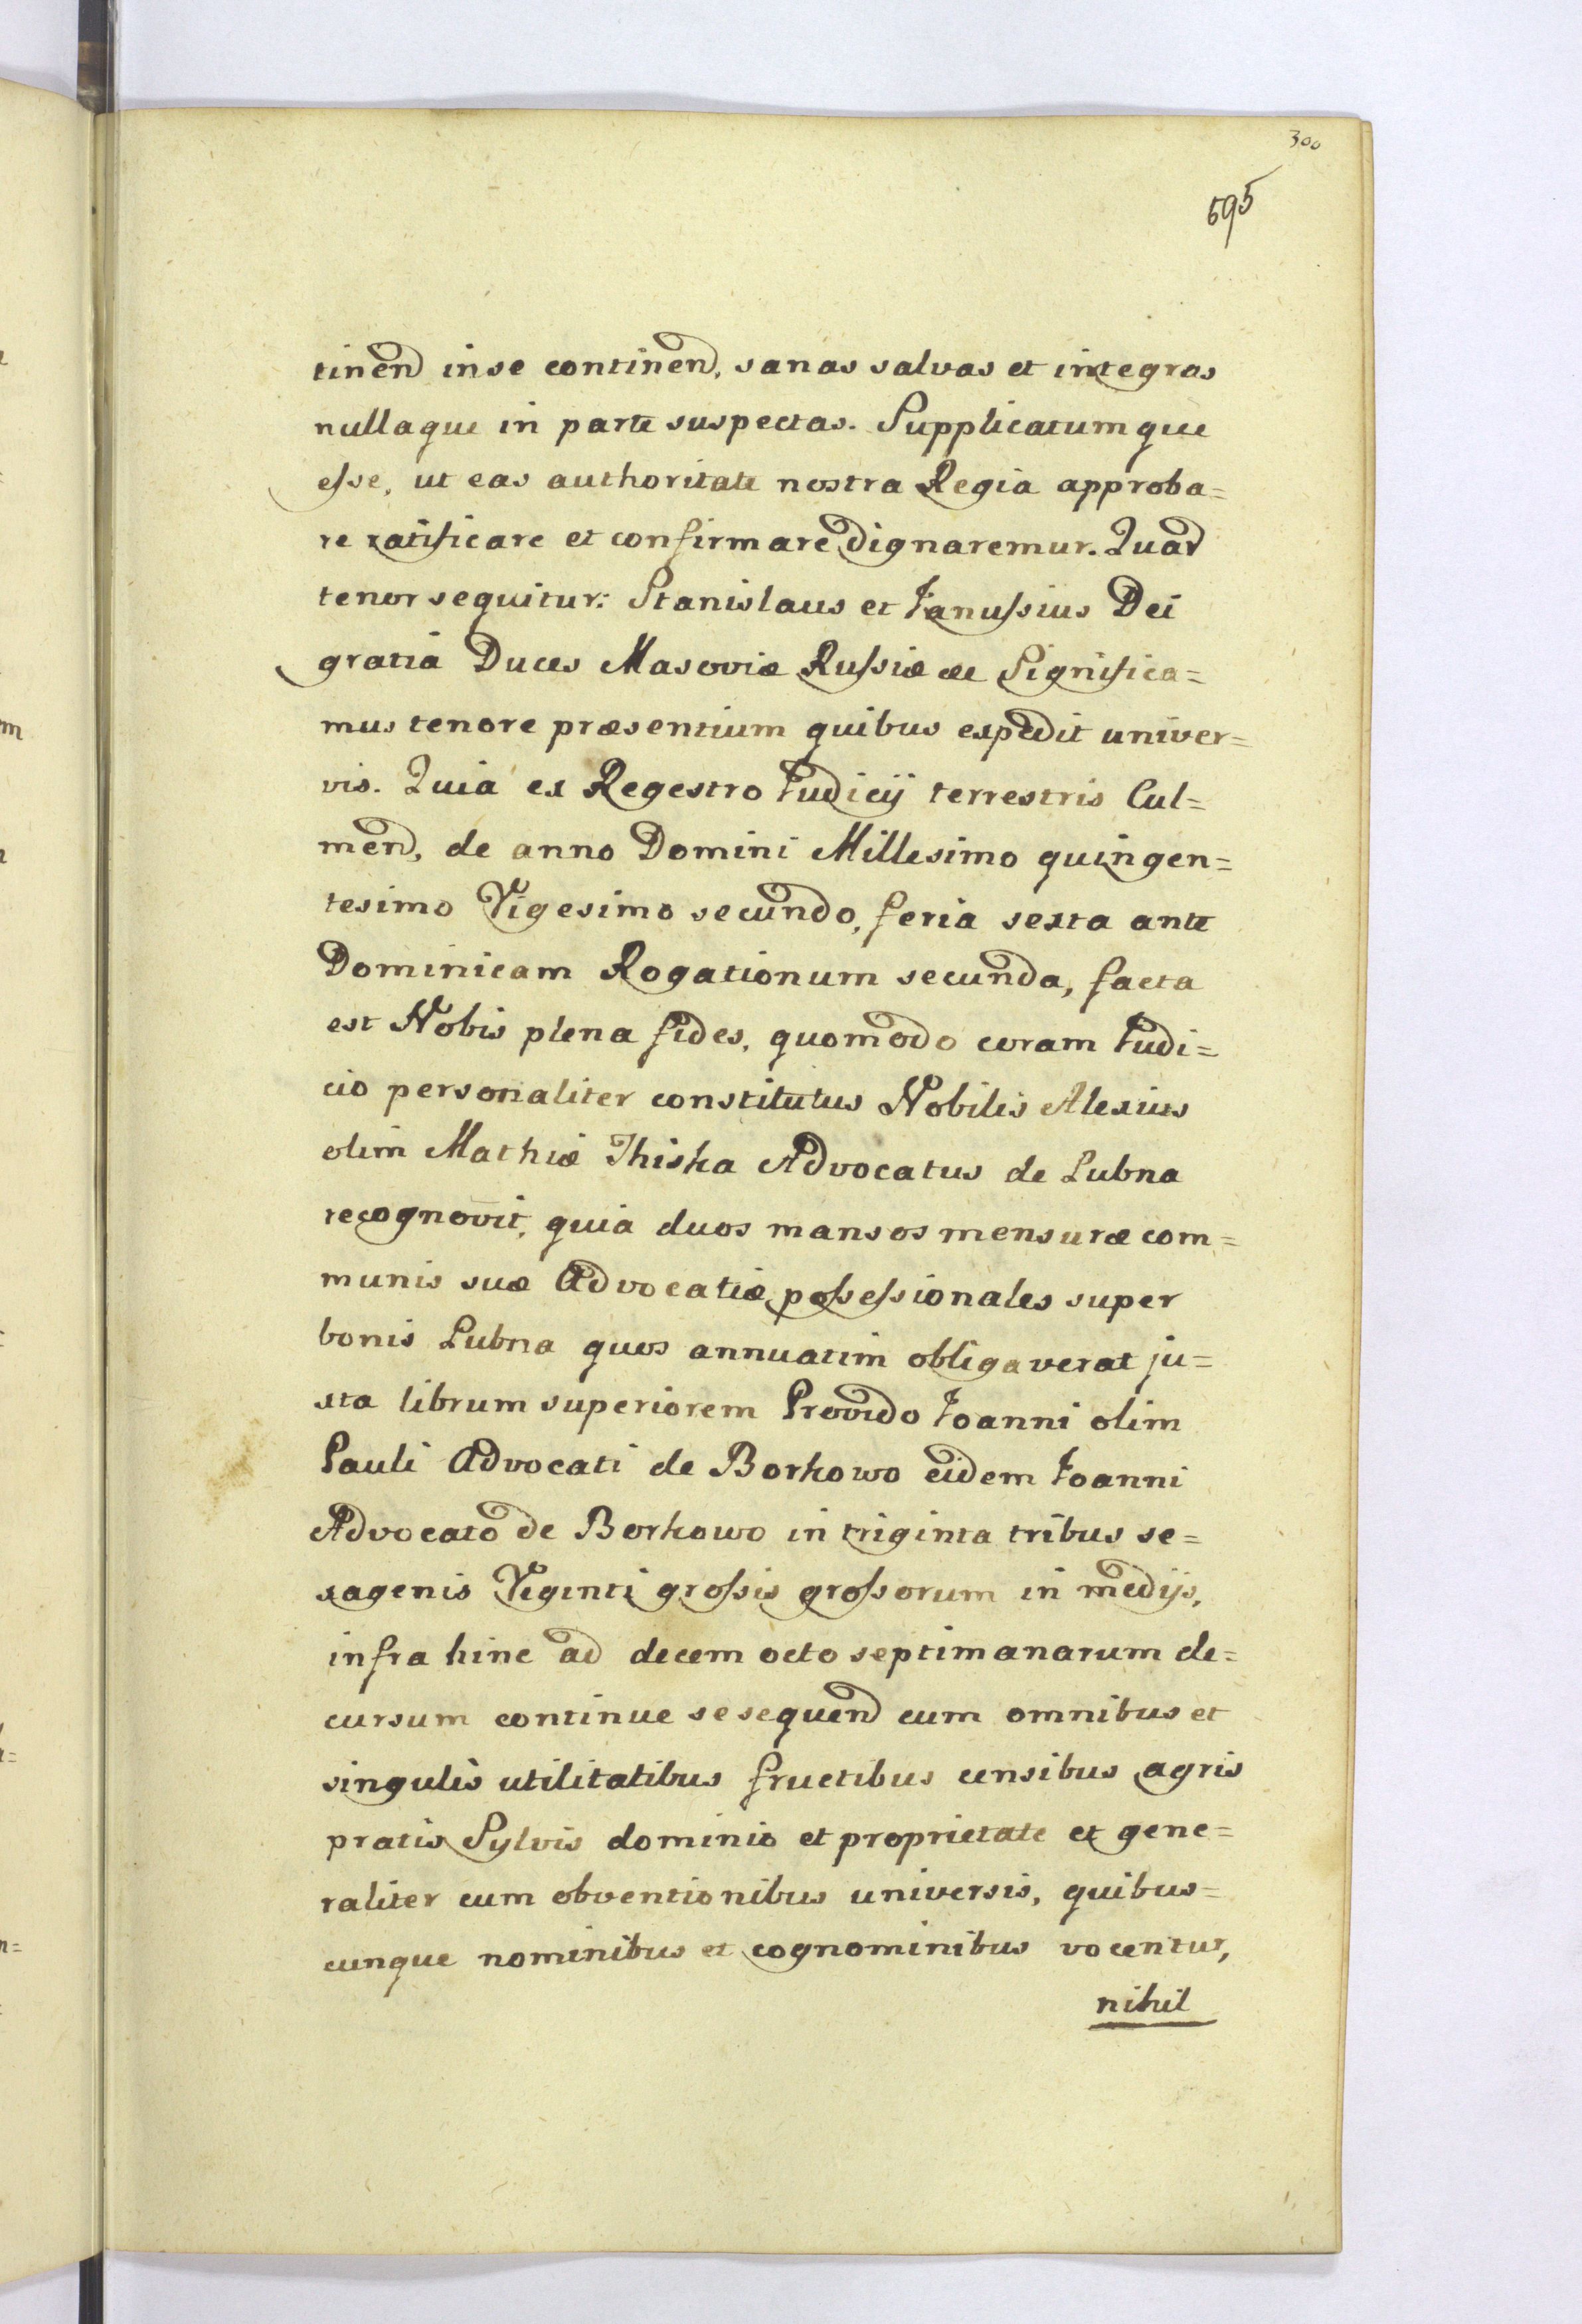 300
595
tinend in se continend, sanas salvas et integras
nullaque in parte suspectas. Supplicatumque
esse, ut eas authoritate nostra Regia approba=
re ratificare et confirmare dignaremur. Quar
tenor sequitur: Stanislaus et Janussius Dei
gratia Duces Masoviæ Russiæ &c Significa=
mus tenore præsentium quibus expedit univer=
sis. Quia ex Regestro Judicij terrestris Cul=
mend, de anno Domini Millesimo quingen=
tesimo Vigesimo secundo, feria sexta ante
Dominicam Rogationum secunda, facta
est Nobis plena fides, quomodo coram Judi=
cio personaliter constitutus Nobilis Alexius
olim Mathiæ Thiska Advocatus de Lubna
recognovit, quia duos mansos mensuræ com=
munis suæ Advocatiæ possessionales super
bonis Lubna quos annuatim obligaverat ju=
xta librum superiorem Provido Joanni olim
Pauli Advocati de Borkowo eidem Joanni
Advocato de Borkowo in triginta tribus se=
xagenis Viginti grossis grossorum in medijs,
infra hinc ad decem octo septimanarum de=
cursum continue se sequend cum omnibus et
singulis utilitatibus fructibus censibus agris
pratis Sylvis dominio et proprietate et gene=
raliter cum obventionibus universis, quibus=
cunque nominibus et cognominibus vocentur,
nihil